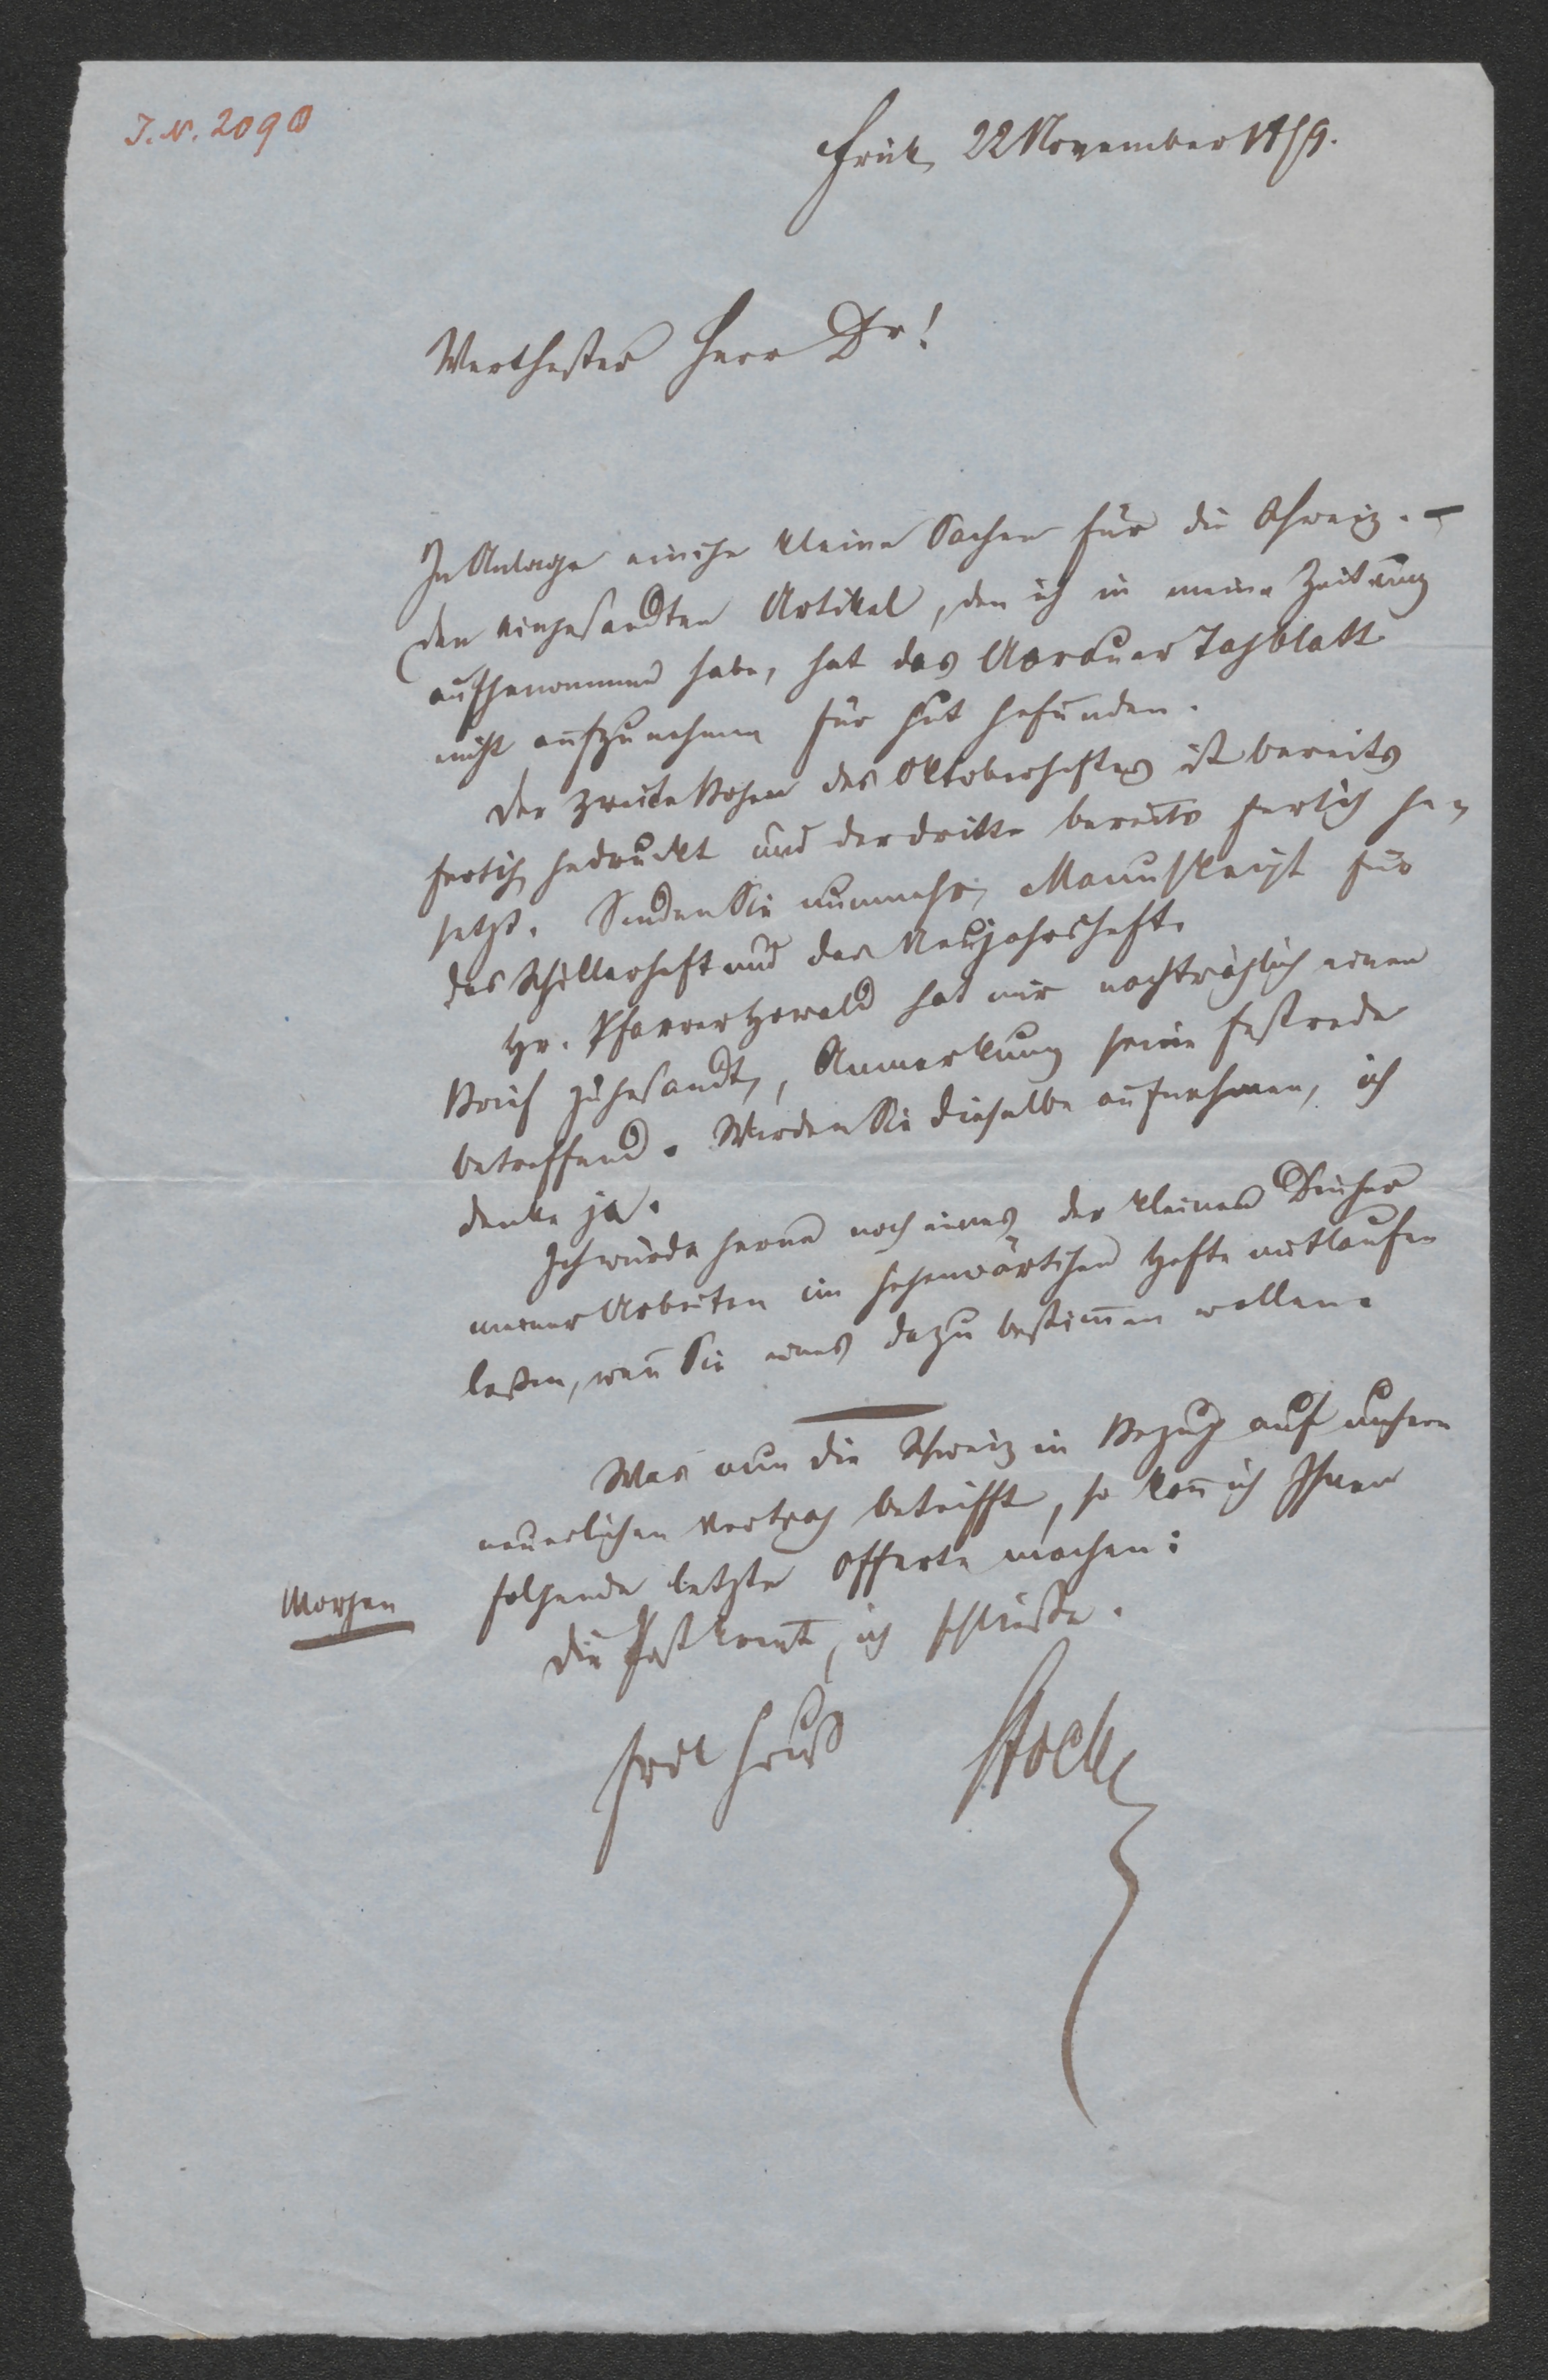 J. N. 2090
Frick, 22 November 1859.
Werthester Herr Dr!
In Anlage einige kleine Sachen für die Schweiz. –
Den eingesandten Artikel, den ich in meine Zeitung
aufgenommen habe, hat das Aarauer Tagblatt
nicht aufzunehmen für gut gefunden.
Der zweite Bogen des Oktoberheftes ist bereits
fertig gedruckt und der dritte bereits fertig ge-
setzt. Senden Sie nunmehr Manuskript für
das Schillerheft und das Neujahrsheft.
Hr. Pfarrer Howald hat mir nachträglich einen
Brief zugesandt, Anmerkung seine Festrede
betreffend. Werden Sie dieselbe aufnehmen, ich
denke ja.
Ich würde gerne noch eines der kleinen Dinger
meiner Arbeiten im gegenwärtigen Hefte mitlaufen
laßen, wen̄ Sie eines dazu bestim̄en wollen.
Was nun die Schweiz in Bezug auf unsern
neuerlichen Vertrag betrifft, so kan̄ ich Ihnen
Morgen folgende letzte Offerte machen:
Die Post kom̄t, ich schließe.
Frdl Gruß
Stock